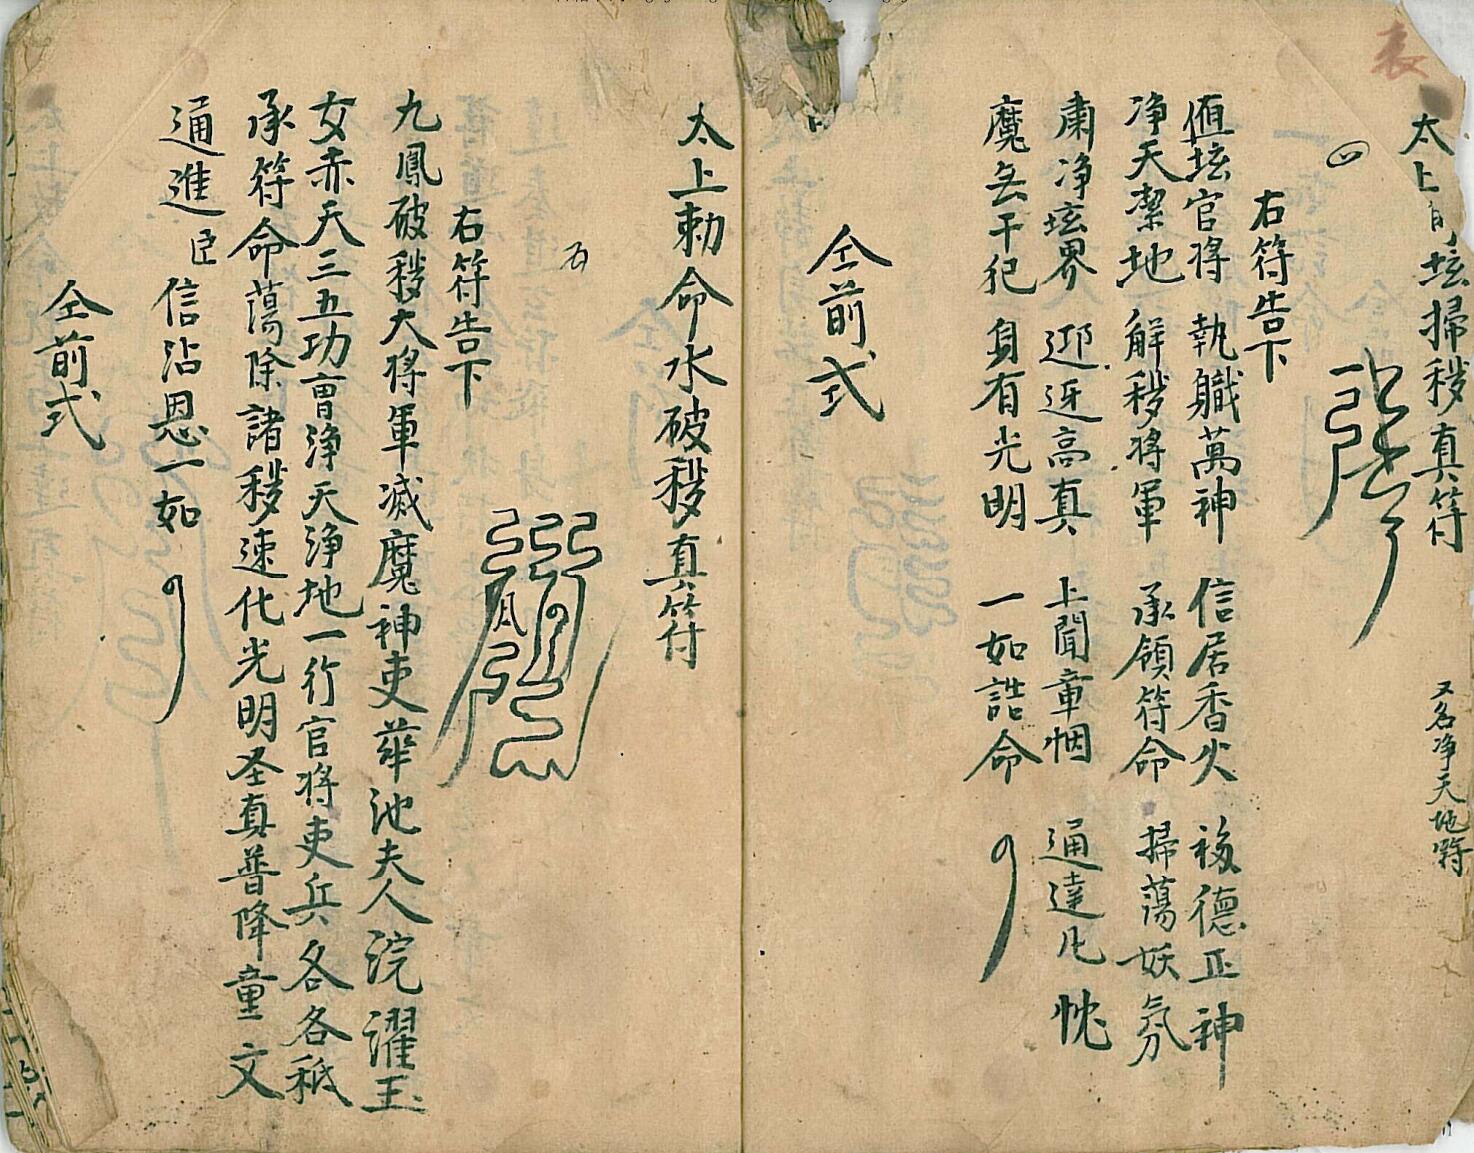 表
太上 壇掃穢真符
又名净天地符
四
右符告下
值坛官将 執職萬神 信居香火 福德正神
净天潔地 解穢将軍 承領符命 掃蕩妖氛
肅净坛界 迎迓高真 上聞章烟 通達凡忱
魔无干犯 身有光明 一如誥命
仝前式
太上勅命水破穢真符
五
右符告下
九鳳破穢大将軍滅魔神吏華池夫人浣濯玉
女赤天三五功曹浄天浄地一行官将吏兵各各祗
承符命蕩除諸穢速化光明圣真普降童文
通進臣 信沾恩一如
仝前式